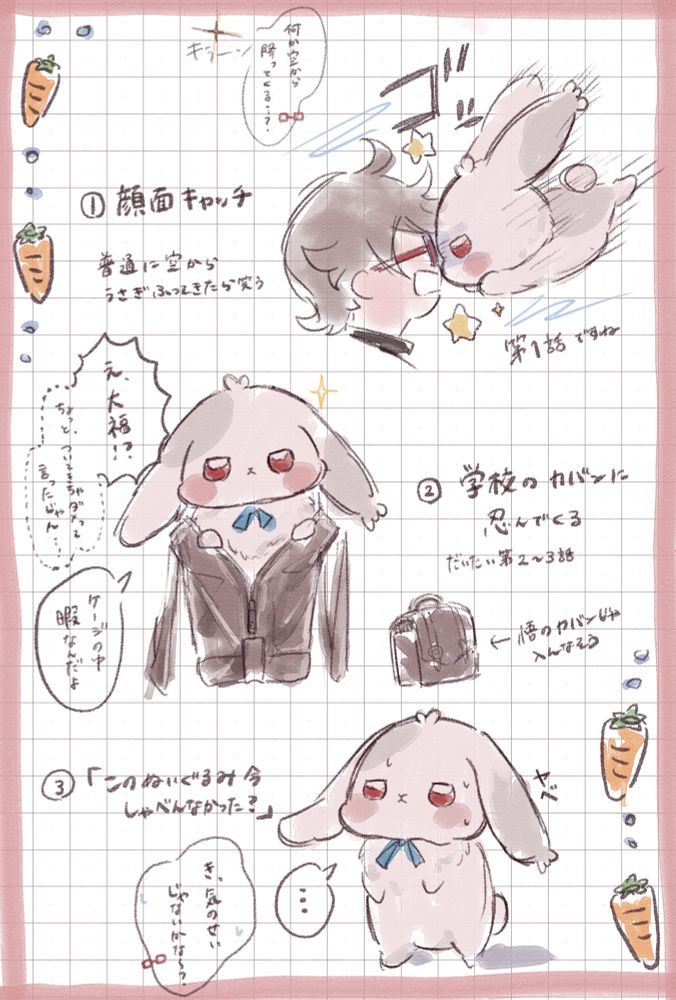 キラーン
何か空から
降ってくる…?
ゴッ
① 顔面キャッチ
普通に空から
うさぎふってきたら笑う
第1話ですね
え、大福!?
ちょっと、ついてきちゃダメって
言ったじゃん…
ケージの中
暇なんだよ
② 学校のカバンに
忍んでくる
だいたい第2〜3話
← 悟のカバンじゃ
入んなそう
③「このぬいぐるみ今
しゃべんなかった?」
ヤベ
…
き、気のせい
じゃないかなぁ?